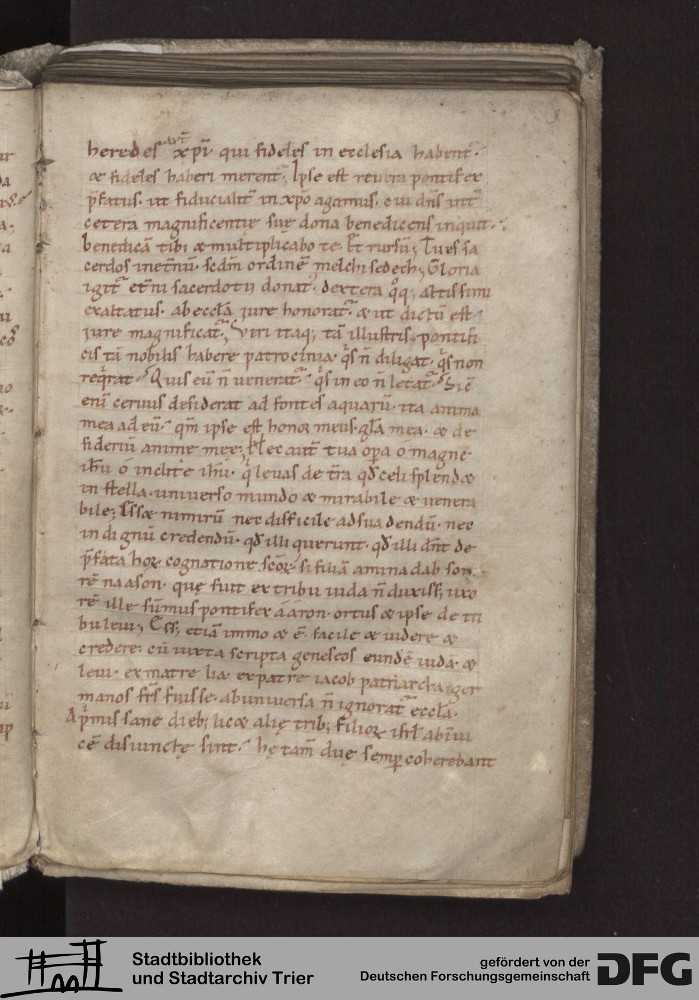 heredes xp̄i qui fideles in ecclesia habent᷑.
& fideles haberi merent᷑; Ipse est revera pontifex
p̄fatus. ut fiducialit᷑ in xp̄o agamus. cui dn̄s int᷑
cetera magnificentię suę dona benedicens inquit.
benedicā tibi & multiplicabo te. Et rursū; Tu es sa
cerdos inet᷑nū. scd̄m ordinē melchisedech; Gloria
igit᷑ et᷑ni sacerdotii donat᷑. dextera q̊q; altissimi
exaltatus. ab eccl̄a jure honorat᷑. & ut dictū est
jure magnificat᷑; Viri itaq; tā illustris. pontifi
cis tā nobilis habere patrocinia. q̇s n̄ diligat. q̇s non
req̇rat. Quis eū n̄ venerat᷑. q̇s in eo n̄ letat᷑. Sic̄
enī cervus desiderat ad fontes aquarū. ita anima
mea ad eū. qm̄ ipse est honor meus. gl̄a mea. & de
sideriū anime meę; Hec aut̄ tua op̄a o magne
ih̄u o inclite ih̄u. q̇ levas de t̄ra qd̄ celi splend&
in stella. universo mundo & mirabile & venera
bile; Ess& nimirū nec difficile ad suadendū. nec
indignū credendū. qd̄ illi querunt. qd̄ illi dn̄t de
p̄fata hoꝝ cognatione sc̄oꝝ. si filiā aminadab soro
rē naason. quę fuit ex tribu iuda n̄ duxiss& uxo
rē ille sūmus pontifex aaron. ortus & ipse de tri
bu levi; Ess& etiā immo & ē facile & videre &
credere. cū iuxta scripta geneseos eundē iuda. &
levi. ex matre lia. ex patre iacob patriarcha ger
manos fr̄s fuisse. ab universa n̄ ignorat᷑ eccl̄a.
A p̄mis sane dieb; lic& alię trib; filioꝝ isr̄l ab invi
cē disiunctę sint. hę tam̄ duę semp̄ coherebant
Stadtbibliothek
und Stadtarchiv Trier
gefördert von der
Deutschen Forschungsgemeinschaft
DFG